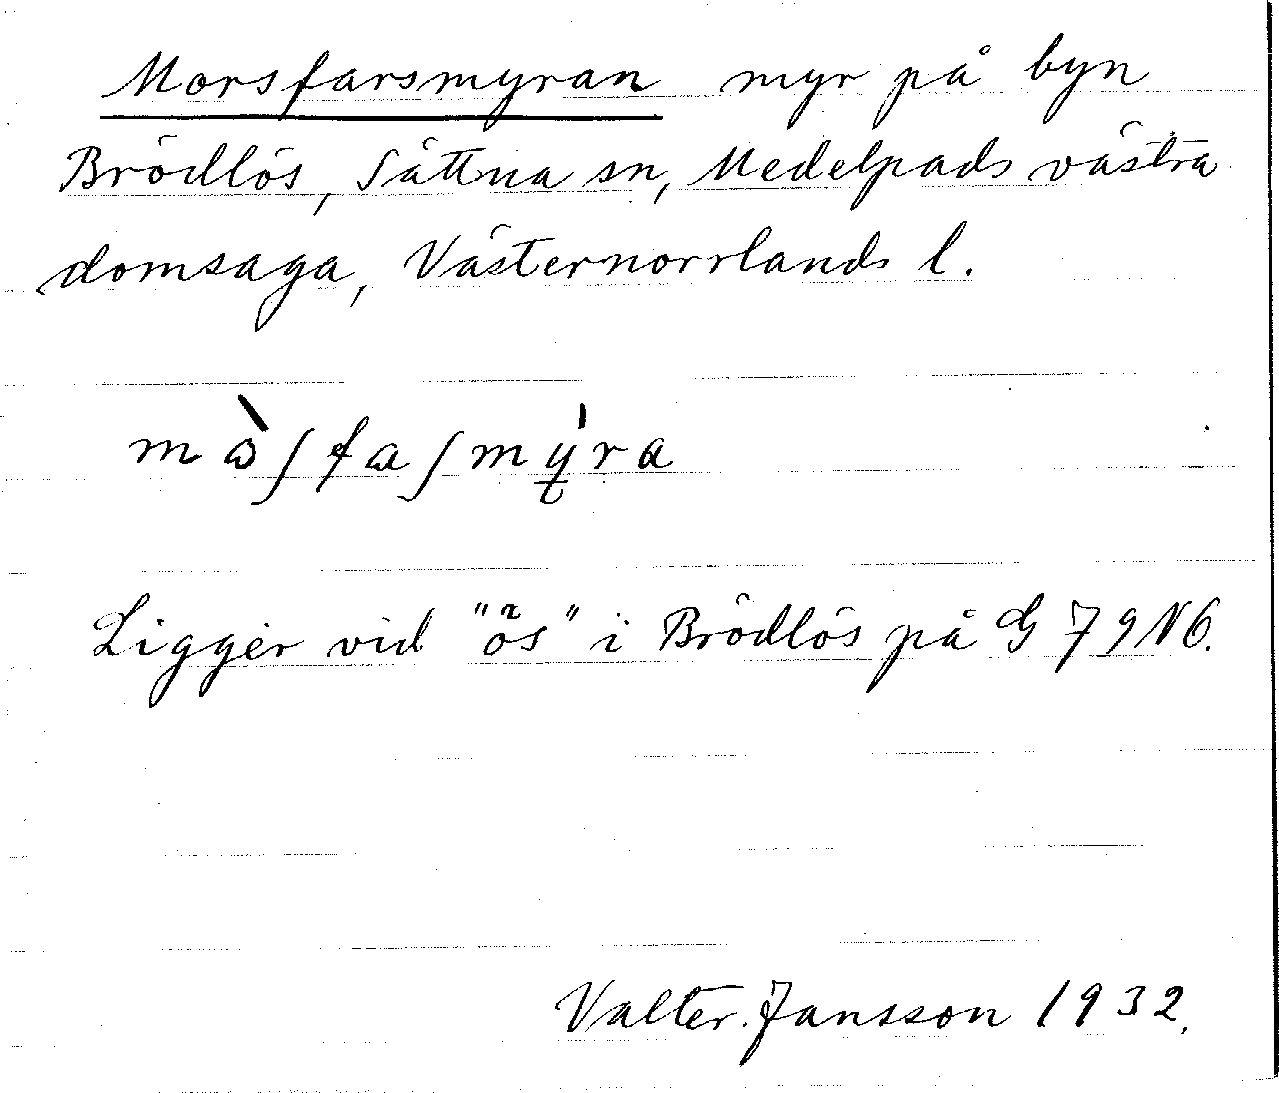 Morsfarsmyran myr på byn
Brödlös, Sättna sn, Medelpads västra
domsaga, Västernorrlands l.
mɷ̀ʃfaʃmý̵ra
Ligger vid "ös" i Brödlös på G 79 N6.
Valter Jansson 1932.